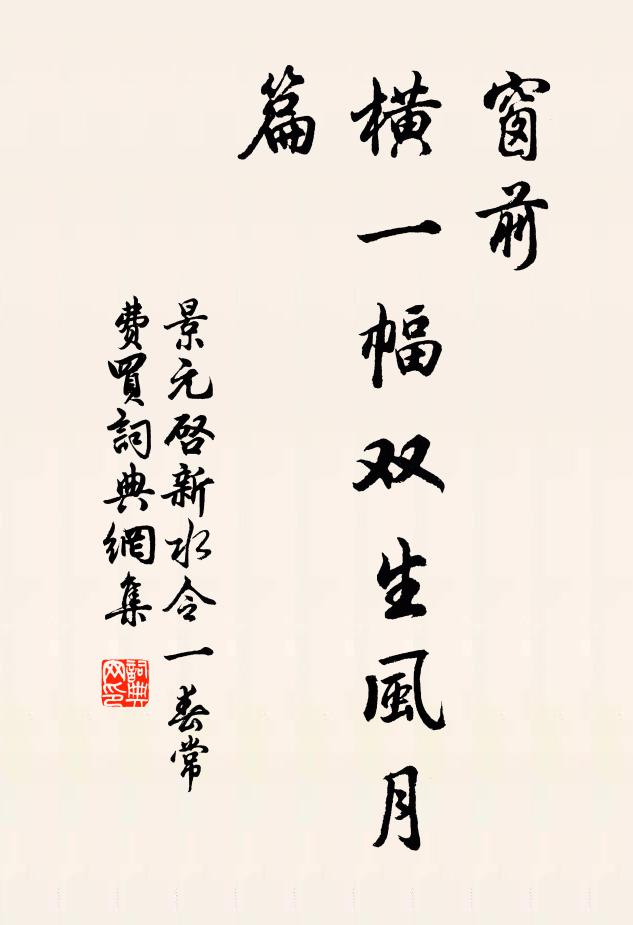 窗前
橫一幅双生風月
篇
景元啓新水令一春常
費買詞典網集
詞典网印